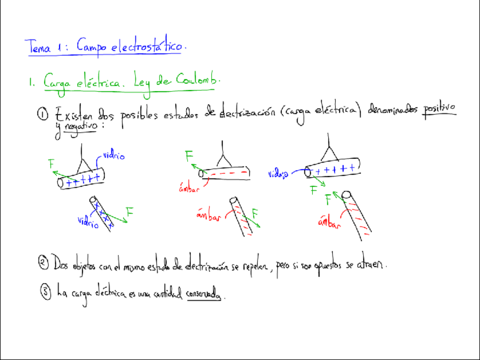 Tema 1: Campo electrostático.
1. Carga eléctrica. Ley de Coulomb.
① Existen dos posibles estados de electrización (carga eléctrica) denominados positivo
y negativo:
vidrio
F
+ + + + +
vidrio
+ + +
F
F
ámbar
- - - -
ámbar
F
vidrio
+ + + + +
F
F
ámbar
② Dos objetos con el mismo estado de electrización se repelen, pero si son opuestos se atraen.
③ La carga eléctrica es una cantidad conservada.